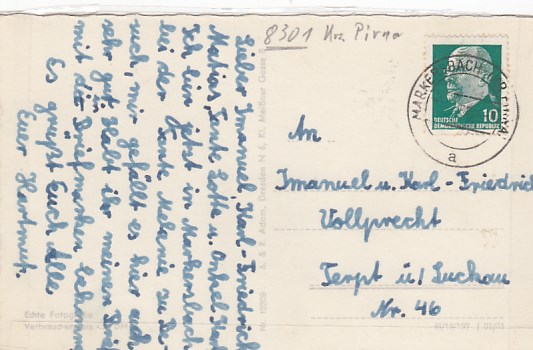 8301 Krs. Pirna
Lieber Imanuel, Karl-Friedrich
Matias, Tante Lotte u. Onkel Karl
Ich bin jetzt in Markersbach
bei der Tante Melanie zu Be-
such, mir gefällt es hier auch
sehr gut. Habt ihr meinen Brief
mit den Briefmarken bekommen
Es grüßt Euch Alle
Euer Hartmut.
A. & R. Adam, Dresden N 6, Kl. Meißner Gasse
Echte Fotografie
MARKERSBACH
a
10
DEUTSCHE
DEMOKRATISCHE REPUBLIK
An
Imanuel u. Karl-Friedrich
Vollprecht
Terpt ü/ Luckau
Nr. 46